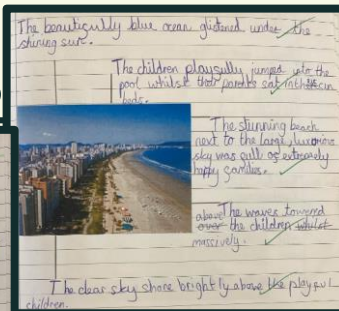 The beautifully blue ocean glistened under the
shining sun.
The children playfully jumped into the
pool whilst their parents sat in the sun
beds.
The stunning beach
next to the large, luxurious
sky was full of extremely
happy families.
above The waves towered
over the children whilst
massively.
The clear sky shone brightly above the playful
children.